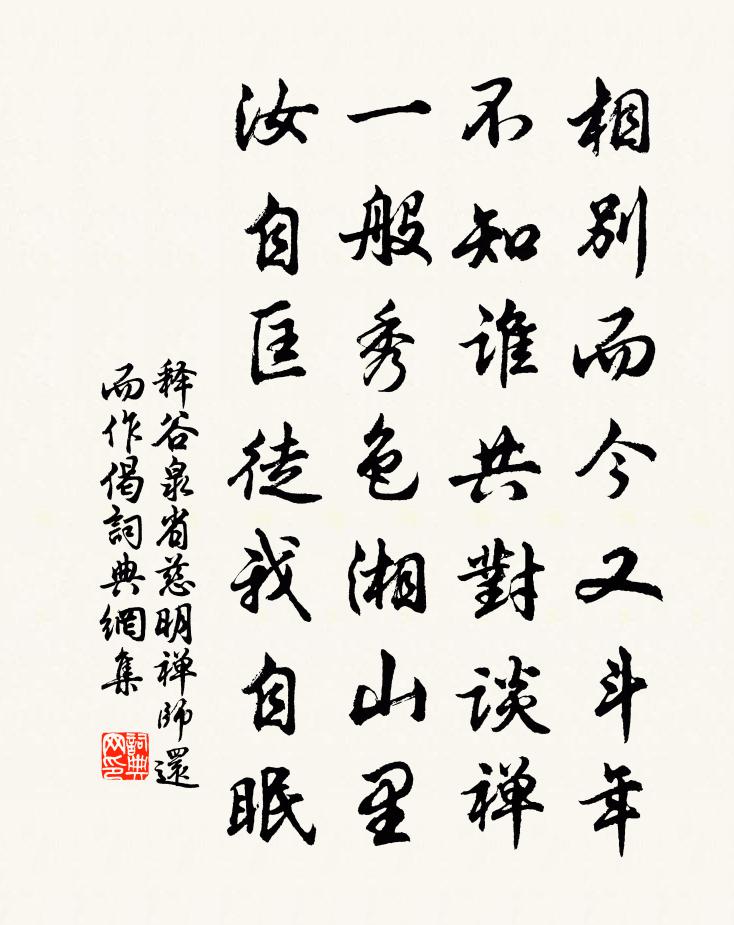 相別而今又斗年
不知誰共對談禅
一般秀色湘山里
汝自匡徒我自眠
释谷泉省慈明禅師還
而作偈詞典網集
詞典网印